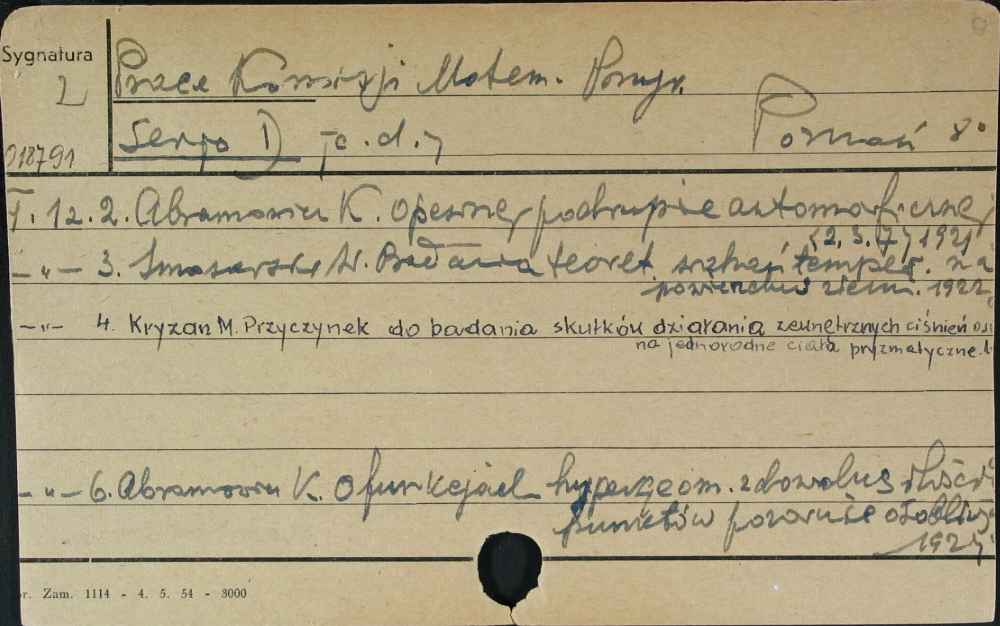 Sygnatura
2
Prace Komisji Matem. Przyr.
Serja I) /c.d./ Poznań 8°
018791
T. 1z. 2. Abramowicz K. O pewnej podgrupie automorficznej
(2, 3, 7) 1921
-"- 3. Smosarski W. Badania teoret. temper. na
powierzchni ziemi. 1922
-"- 4. Kryzan M. Przyczynek do badania skutków działania zewnętrznych ciśnień
na jednorodne ciała pryzmatyczne.
-"- 6. Abramowicz K. O funkcjach hypergeom. z dowolną ilością
punktów pozornie osobliwych
192
r. Zam. 1114 - 4. 5. 54 - 3000